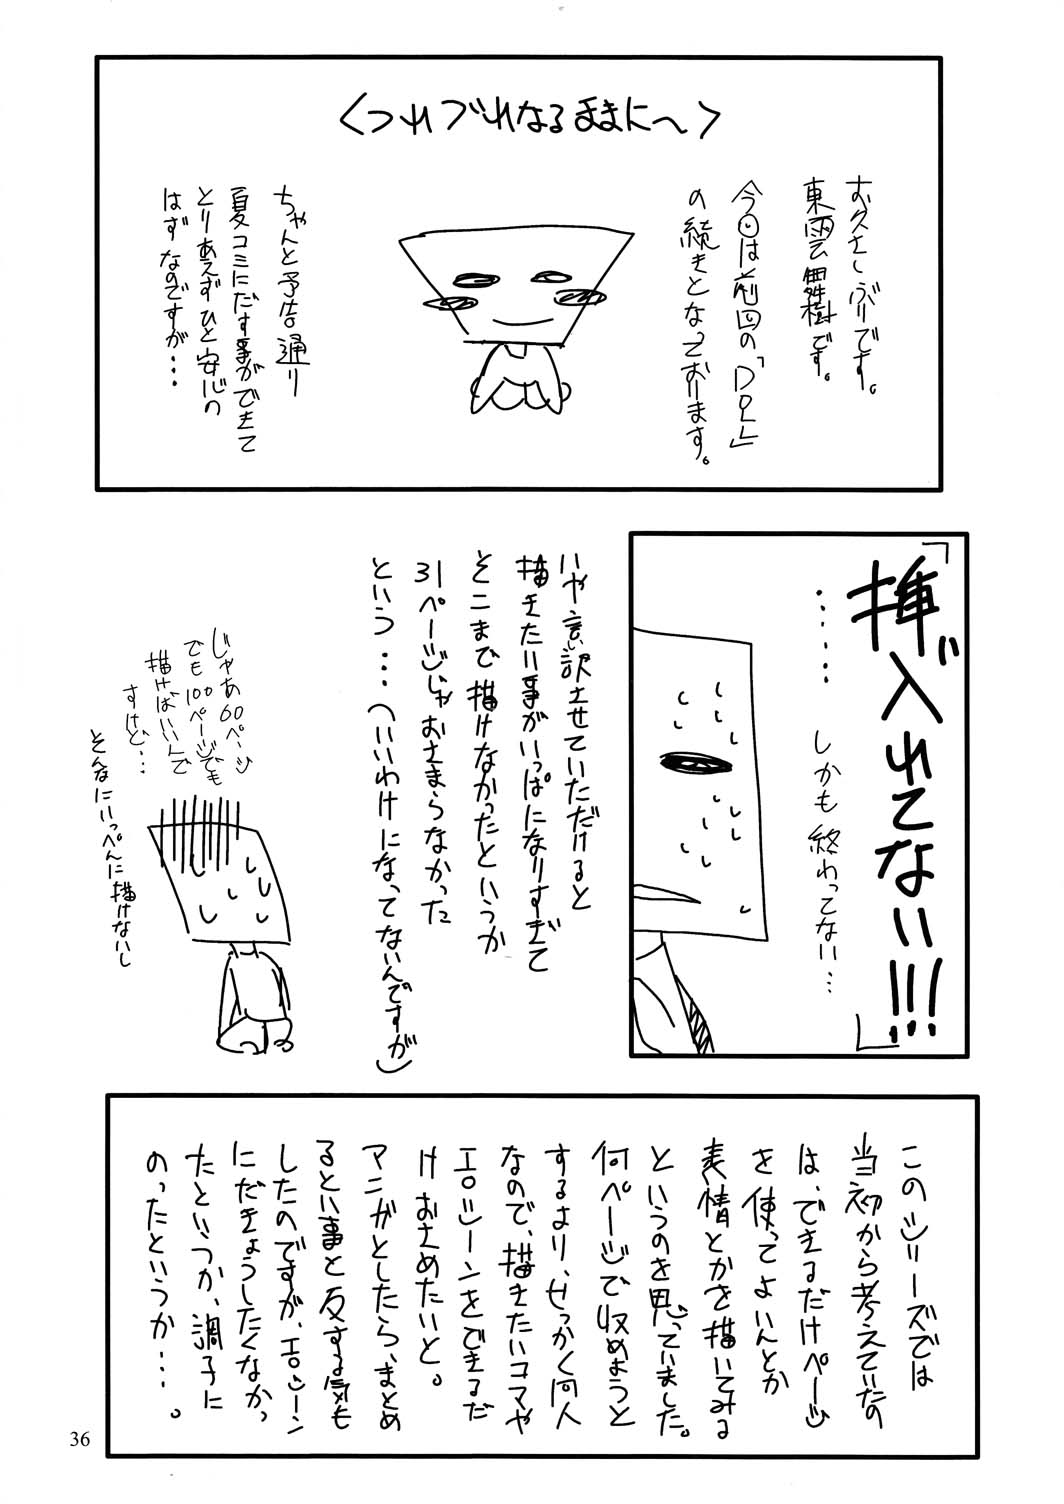 <つれづれなるままに〜>
お久さしぶりです。
東雲霧樹です。
今回は前回の「DOLL」
の続きとなっております。
ちゃんと予告通り
夏コミにだす事ができて
とりあえずひと安心の
はずなのですが・・・
「挿入れてない!!!」
・・・・・・しかも終わってない・・・
いや意訳させていただけると
描きたい事がいっぱいになりすぎて
そこまで描けなかったというか
31ページじゃおさまらなかった
という・・・(いいわけになってないんですが)
じゃあ60ページ
でも100ページでも
描けばいいんで
すけど・・・
そんなにいっぺんに描けないし
このシリーズでは
当初から考えていたの
は、できるだけページ
を使ってよいんとか
表情とかを描いてみる
というのを思っていました。
何ページで収めようと
するより、せっかく同人
なので、描きたいコマや
エロシーンをできるだ
けおさめたいと。
マンガとしたら、まとめ
るという事と反する気も
したのですが、エロシーン
にだきょうしたくなかっ
たというか、調子に
のったというか・・・。
36